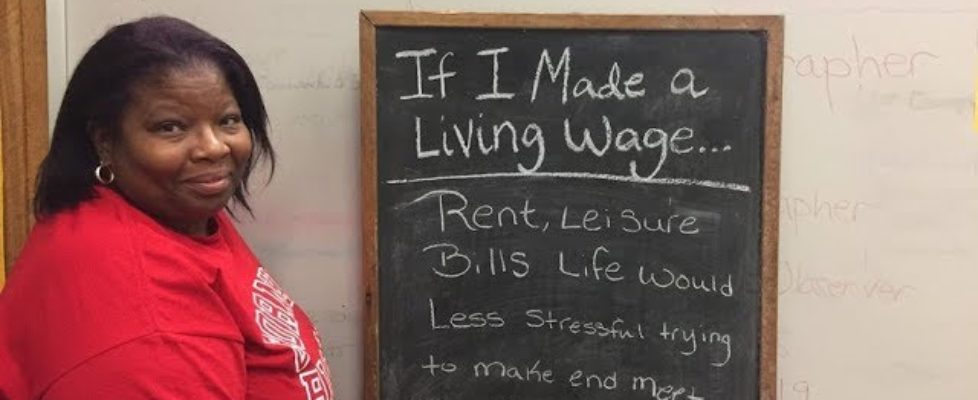 If I Made a
Living Wage...
Rent, Leisure
Bills Life would
Less stressful trying
to make end meet
rapher
pher
Observer